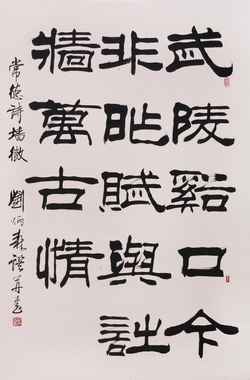 武陵谿口今
非昨賦與詩
牆萬古情
常德詩墻徵 劉炳森譔并書